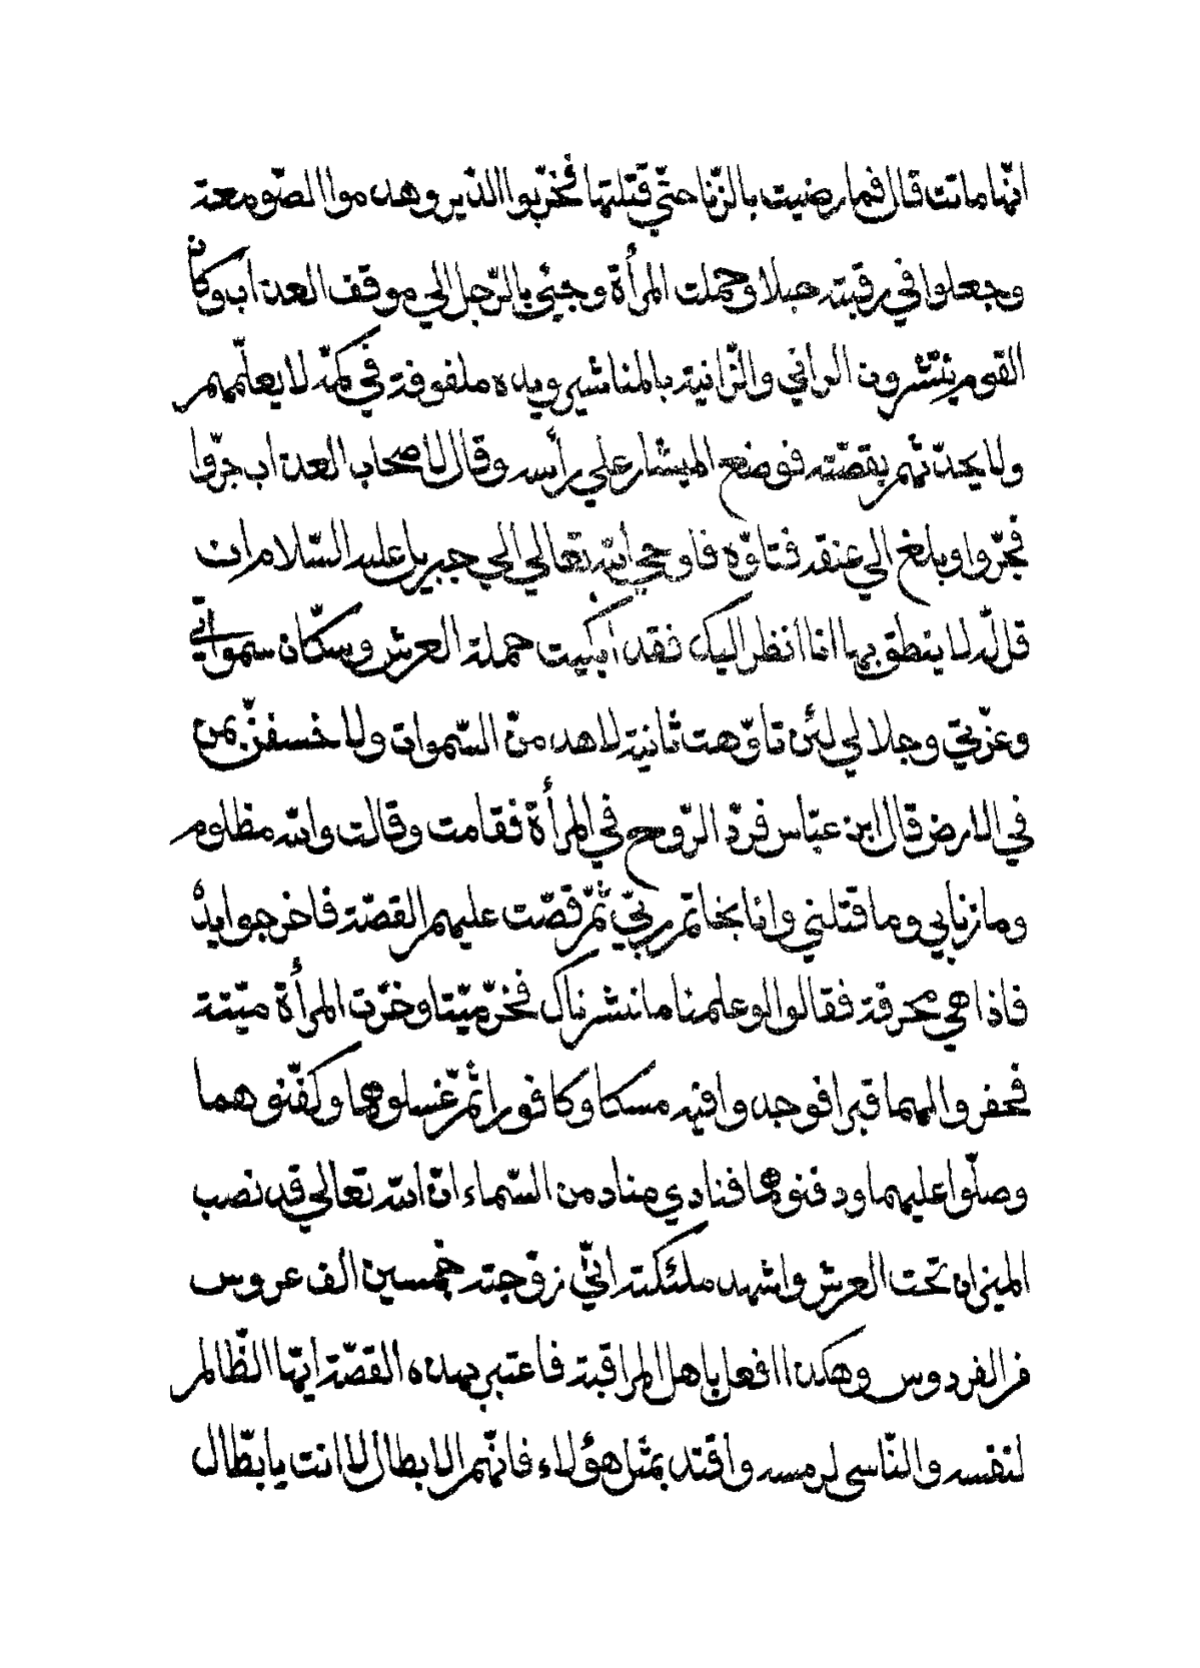 انّها ماتت قال فما رضيت بالزّنا حتّي قتلتها فخرّبوا الدّير وهدموا الصّومعة
وجعلوا في رقبته حبلا وحملت المرأة وجيئ بالرّجل الي موقف العذاب وكان
القوم ينّشرون الزاني والزّانية بالمناشير ويده ملفوفة في كمّه لا يعلّمهم
ولا يحدّثهم بقصّته فوضع الميشار علي رأسه وقال لاصحاب العذاب جرّوا
فجرّوا وبلغ الي عنقه فتاوّه فاوحي الله تعالي الي جبريل عليه السّلام ان
قل له لا ينطق بها انا انظر اليك فقد ابكيت حملة العرش وسكّان سمواتي
وعزّتي وجلالي لئن تاوّهت ثانية لاهدمنّ السّموات ولاخسفنّ بمن
في الارض قال ابن عبّاس فردّ الرّوح في المرأة فقامت وقالت والله مظلوم
وما زنا بي وما قتلني وانا بخاتم ربّي ثمّ قصّت عليهم القصّة فاخرجوا يده
فاذا هي محرقة فقالوا لو علمنا ما نشرناك فخرّ ميّتا وخرّت المرأة ميّتة
فحفروا لهما قبرا فوجدوا فيه مسكا وكافورا ثمّ غسلوهما وكفّنوهما
وصلّوا عليهما ودفنوهما فنادي مناد من السّماء انّ الله تعالي قد نصب
الميزان تحت العرش واشهد ملئكته انّي زوّجته خمسين الف عروس
فر الفردوس وهكذا افعل باهل المراقبة فاعتبر بهذه القصّة ايّها الظّالم
لنفسه والنّاسي لرمسه واقتد بمثل هؤلاء فانّهم الابطال لا انت يا بطّال